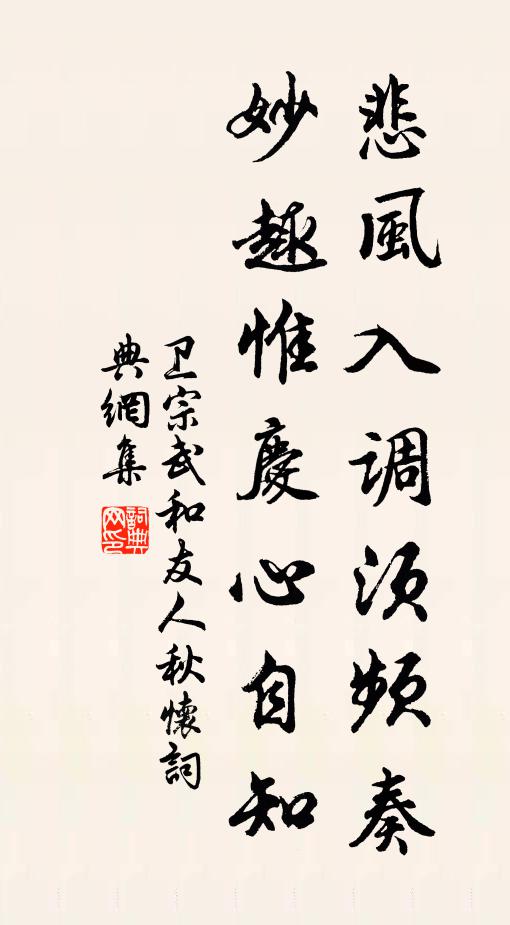 悲風入调須頻奏
妙趣惟慶心自知
卫宗武和友人秋懷詞
典網集
詞典
网印